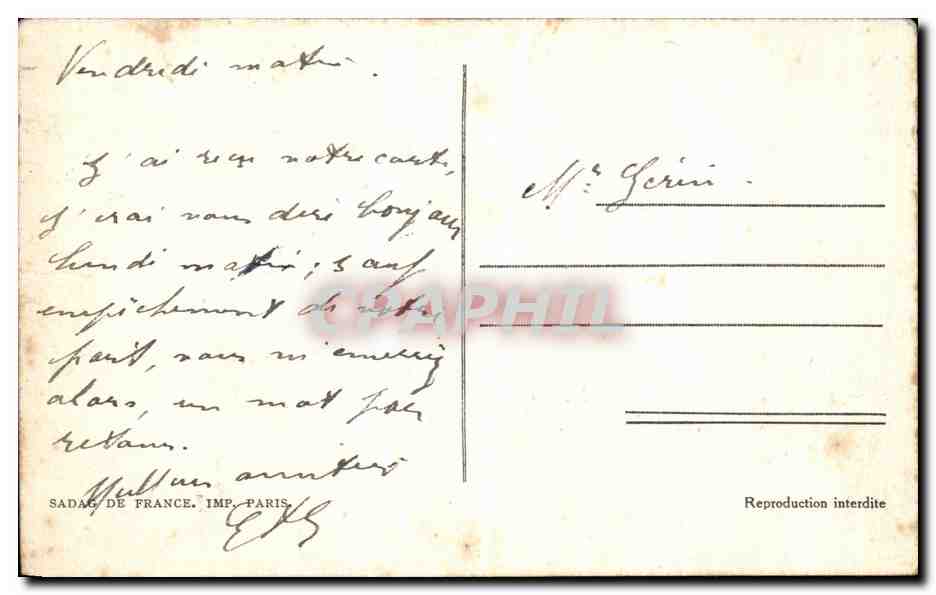 Vendredi matin.
J'ai reçu votre carte,
J'irai vous dire bonjour
lundi matin ; sauf
empêchement de votre
part, vous m'enverrez
alors, un mot par
retour.
amitiés
SADAG DE FRANCE. IMP. PARIS.
Mr. Gérin.
Reproduction interdite
CPAPHIL